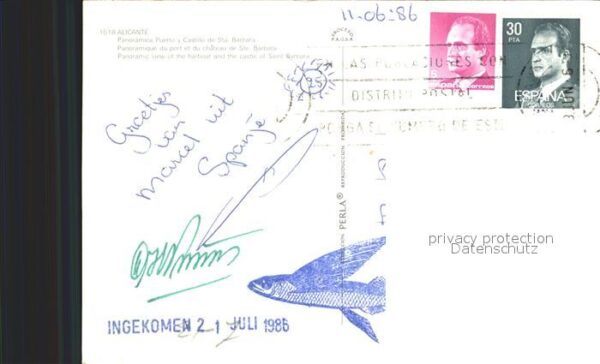 11-06-86
1518 ALICANTE
Panorámica, Puerto y Castillo de Sta. Bárbara
Panoramique du port et du château de Ste. Barbara
Panoramic view of the harbour and the castle of Saint Barbara
30
PTA
ESPAÑA
correos
LAS POBLACIONES CON
DISTRITO POSTAL
PONGA EL NUMERO DE ESTE
Groetjes
van
Marcel uit
Spanje
PERLA®
REPRODUCCION PROHIBIDA
privacy protection
Datenschutz
INGEKOMEN 2 1 JULI 1986